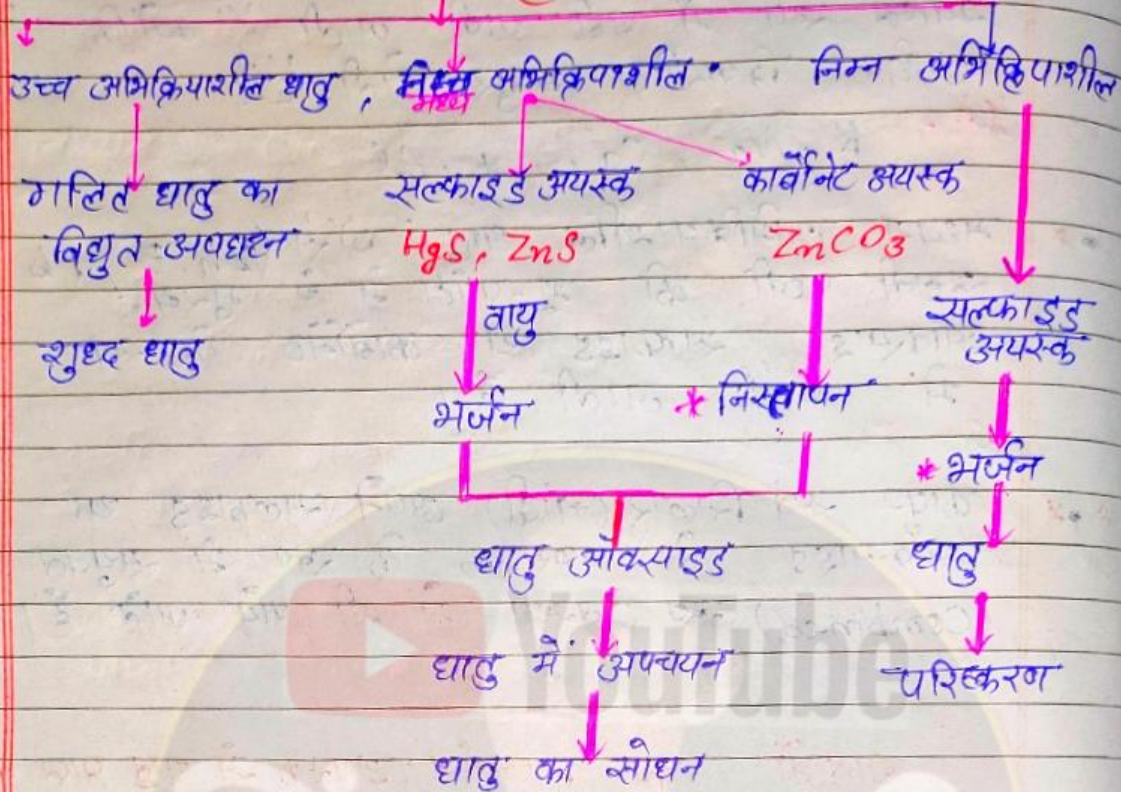 उच्च अभिक्रियाशील धातु , मध्य अभिक्रियाशील · निम्न अभिक्रियाशील
गलित धातु का
विद्युत अपघटन
शुध्द धातु
सल्फाइड अयस्क
HgS, ZnS
वायु
भर्जन
कार्बोनेट अयस्क
ZnCO3
* निस्तापन
धातु ऑक्साइड
धातु में अपचयन
धातु का सोधन
सल्फाइड
अयस्क
* भर्जन
धातु
परिष्करण
YouTube